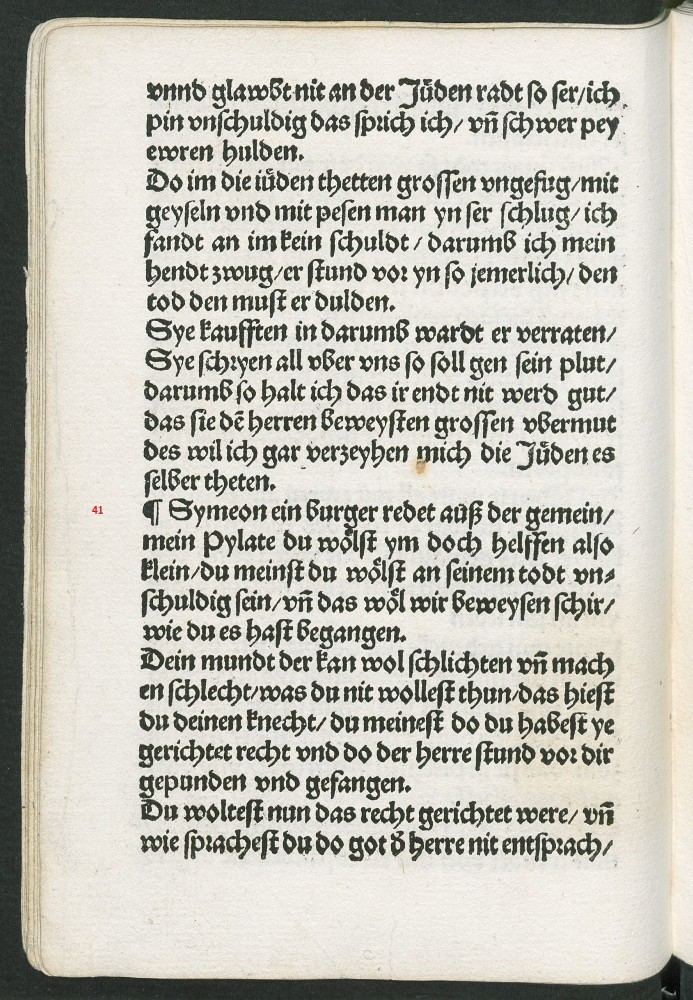 vnnd glawbt nit an der Jüden radt so ser/ich
pin vnschuldig das sprich ich/ vn̄ schwer pey
ewren hulden.
Do im die iüden thetten grossen vngefug/mit
geyseln vnd mit pesen man yn ser schlug/ ich
fandt an im kein schuldt / darumb ich mein
hendt zwug/er stund vor yn so jemerlich/ den
tod den must er dulden.
Sye kaufften in darumb wardt er verraten/
Sye schryen all vber vns so soll gen sein plut/
darumb so halt ich das ir endt nit werd gut/
das sie dē herren beweysten grossen vbermut
des wil ich gar verzeyhen mich die Jüden es
selber theten.
41 ¶ Symeon ein burger redet auß der gemein/
mein Pylate du woͤlst ym doch helffen also
klein/du meinst du woͤlst an seinem todt vn⸗
schuldig sein/vn̄ das woͤl wir beweysen schir/
wie du es hast begangen.
Dein mundt der kan wol schlichten vn̄ mach
en schlecht/was du nit wollest thun/das hiest
du deinen knecht/ du meinest do du habest ye
gerichtet recht vnd do der herre stund vor dir
gepunden vnd gefangen.
Du woltest nun das recht gerichtet were/ vn̄
wie sprachest du do got d̕ herre nit entsprach/